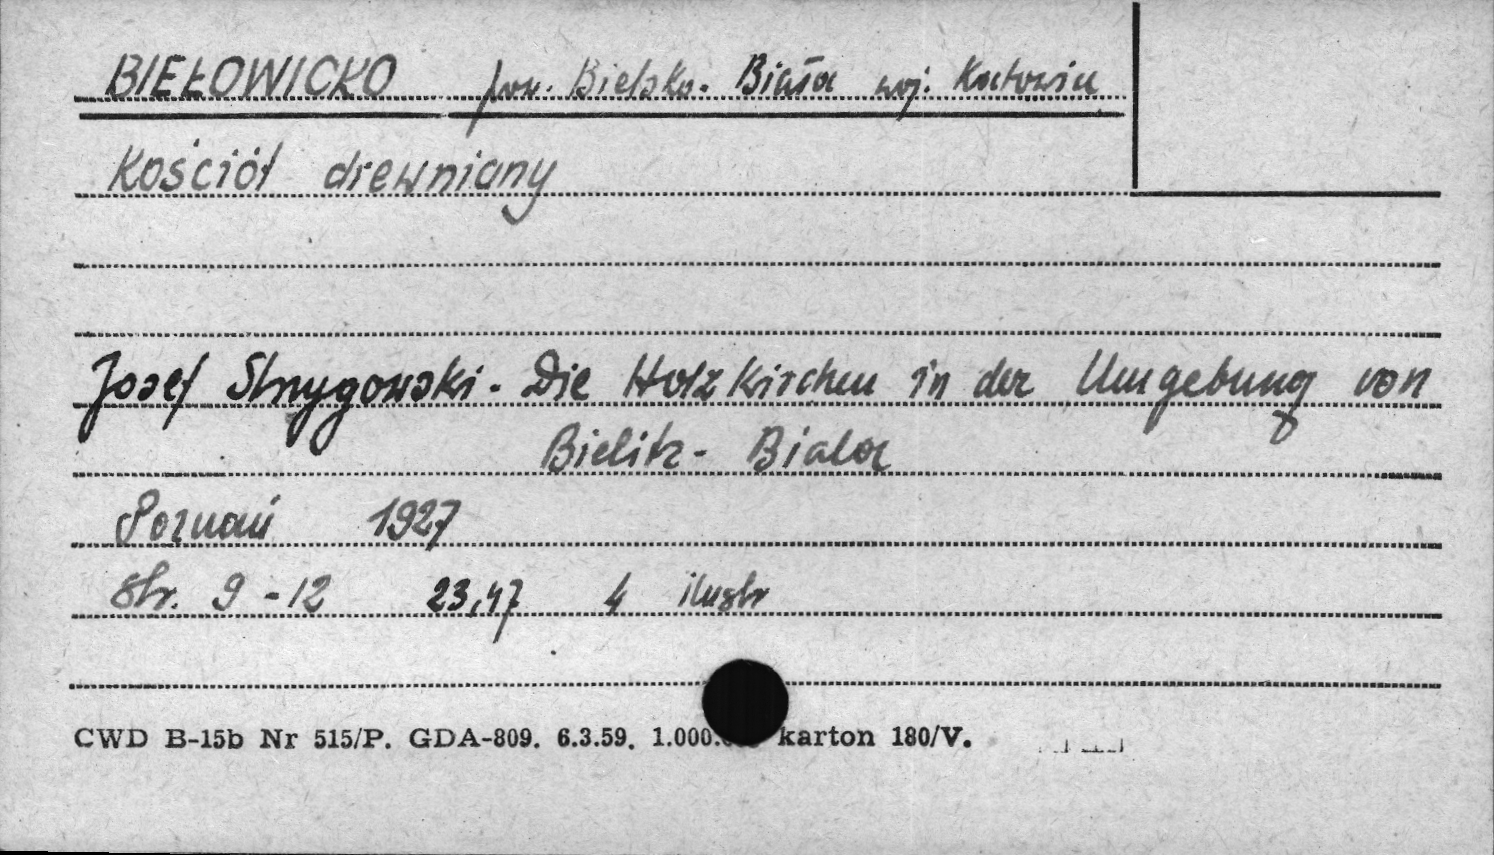 BIEŁOWICKO pow. Bielsko-Biała woj. Katowice
Kościół drewniany
Josef Strzygowski - Die Holzkirchen in der Umgebung von
Bielitz - Biala
Poznań 1927
str. 9-12 23,47 4 ilustr
CWD B-15b Nr 515/P. GDA-809. 6.3.59. karton 180/V.